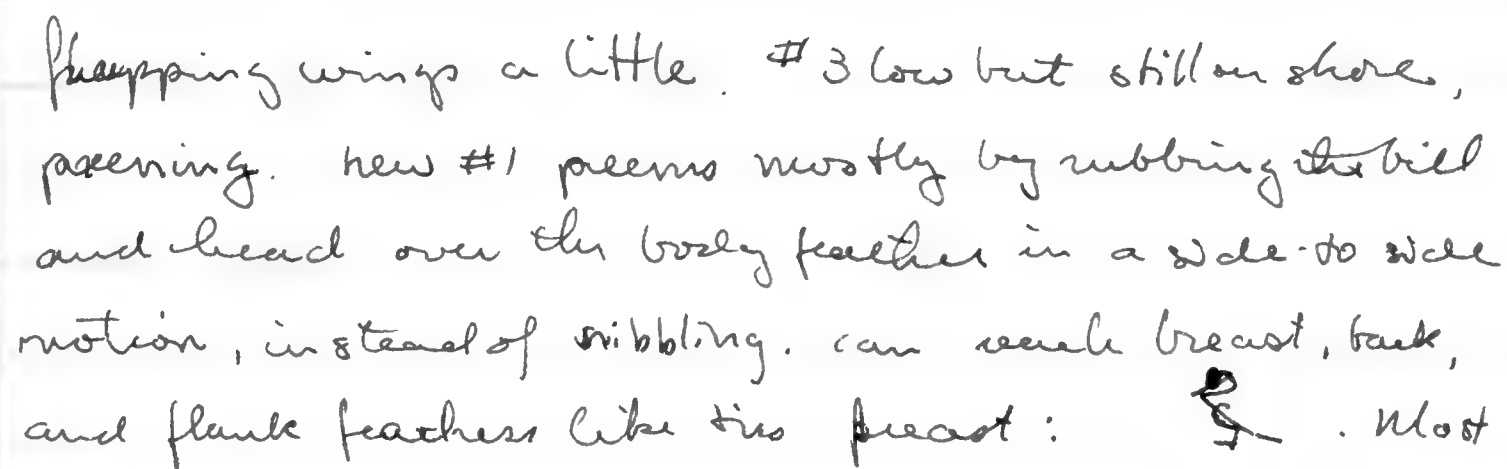 flapping wings a little. #3 low but still on shore,
preening. new #1 preens mostly by rubbing the bill
and head over the body feather in a side-to side
motion, instead of nibbling. can reach breast, back,
and flank feathers like this breast: . Most